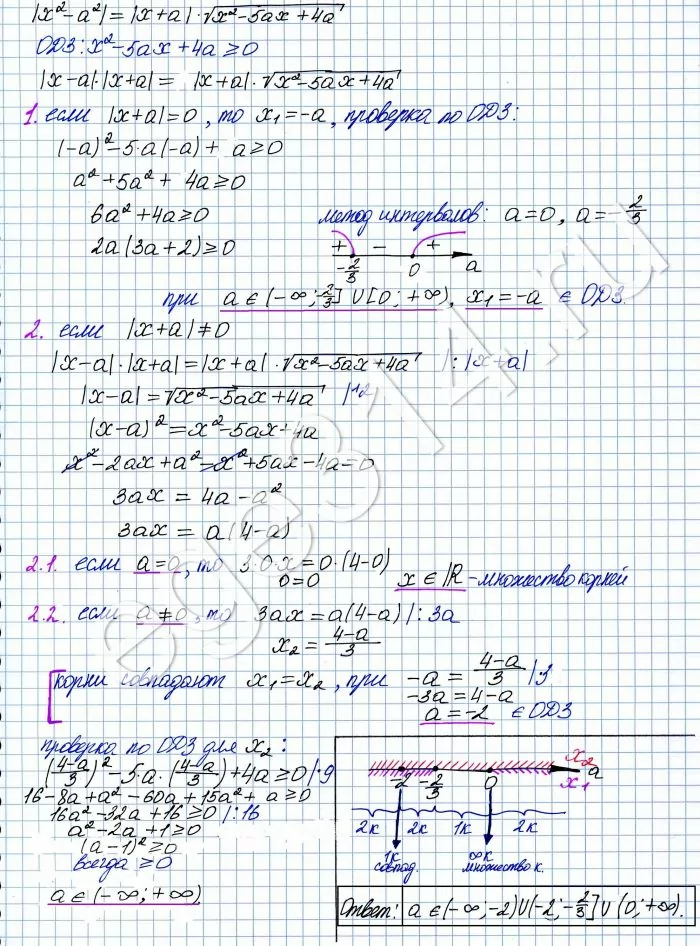 |x²-a²|=|x+a|·√(x²-5ax+4a)
ОДЗ: x²-5ax+4a≥0
|x-a|·|x+a|= |x+a|·√(x²-5ax+4a)
1. если |x+a|=0, то x₁=-a, проверка по ОДЗ:
(-a)²-5·a(-a)+ a≥0
a²+5a²+ 4a≥0
6a²+4a≥0 метод интервалов: a=0, a=-2/3
2a(3a+2)≥0
+ - +
-2/3 0 a
при a∈(-∞;-2/3]∪[0;+∞), x₁=-a ∈ ОДЗ.
2. если |x+a|≠0
|x-a|·|x+a|=|x+a|·√(x²-5ax+4a) |:|x+a|
|x-a|=√(x²-5ax+4a) |^2
(x-a)²=x²-5ax+4a
x²-2ax+a²-x²+5ax-4a=0
3ax = 4a-a²
3ax = a(4-a)
2.1. если a=0, то 3·0·x=0·(4-0)
0=0 x∈ℝ-множество корней
2.2. если a≠0, то 3ax=a(4-a)|:3a
x₂=(4-a)/3
корни совпадают x₁=x₂, при -a=(4-a)/3 |·3
-3a=4-a
a=-2 ∈ОДЗ
проверка по ОДЗ для x₂:
((4-a)/3)²-5a·((4-a)/3)+4a≥0|·9
16-8a+a²-60a+15a²+ a≥0
16a²-32a+16≥0|:16
a²-2a+1≥0
(a-1)²≥0
всегда ≥0
a∈(-∞;+∞)
x₂
-2 -2/3 0 x₁ a
2к 2к 1к 2к
1к совпад.
∞к множество к.
Ответ: a∈(-∞;-2)∪(-2;-2/3]∪(0;+∞).
ege314.ru